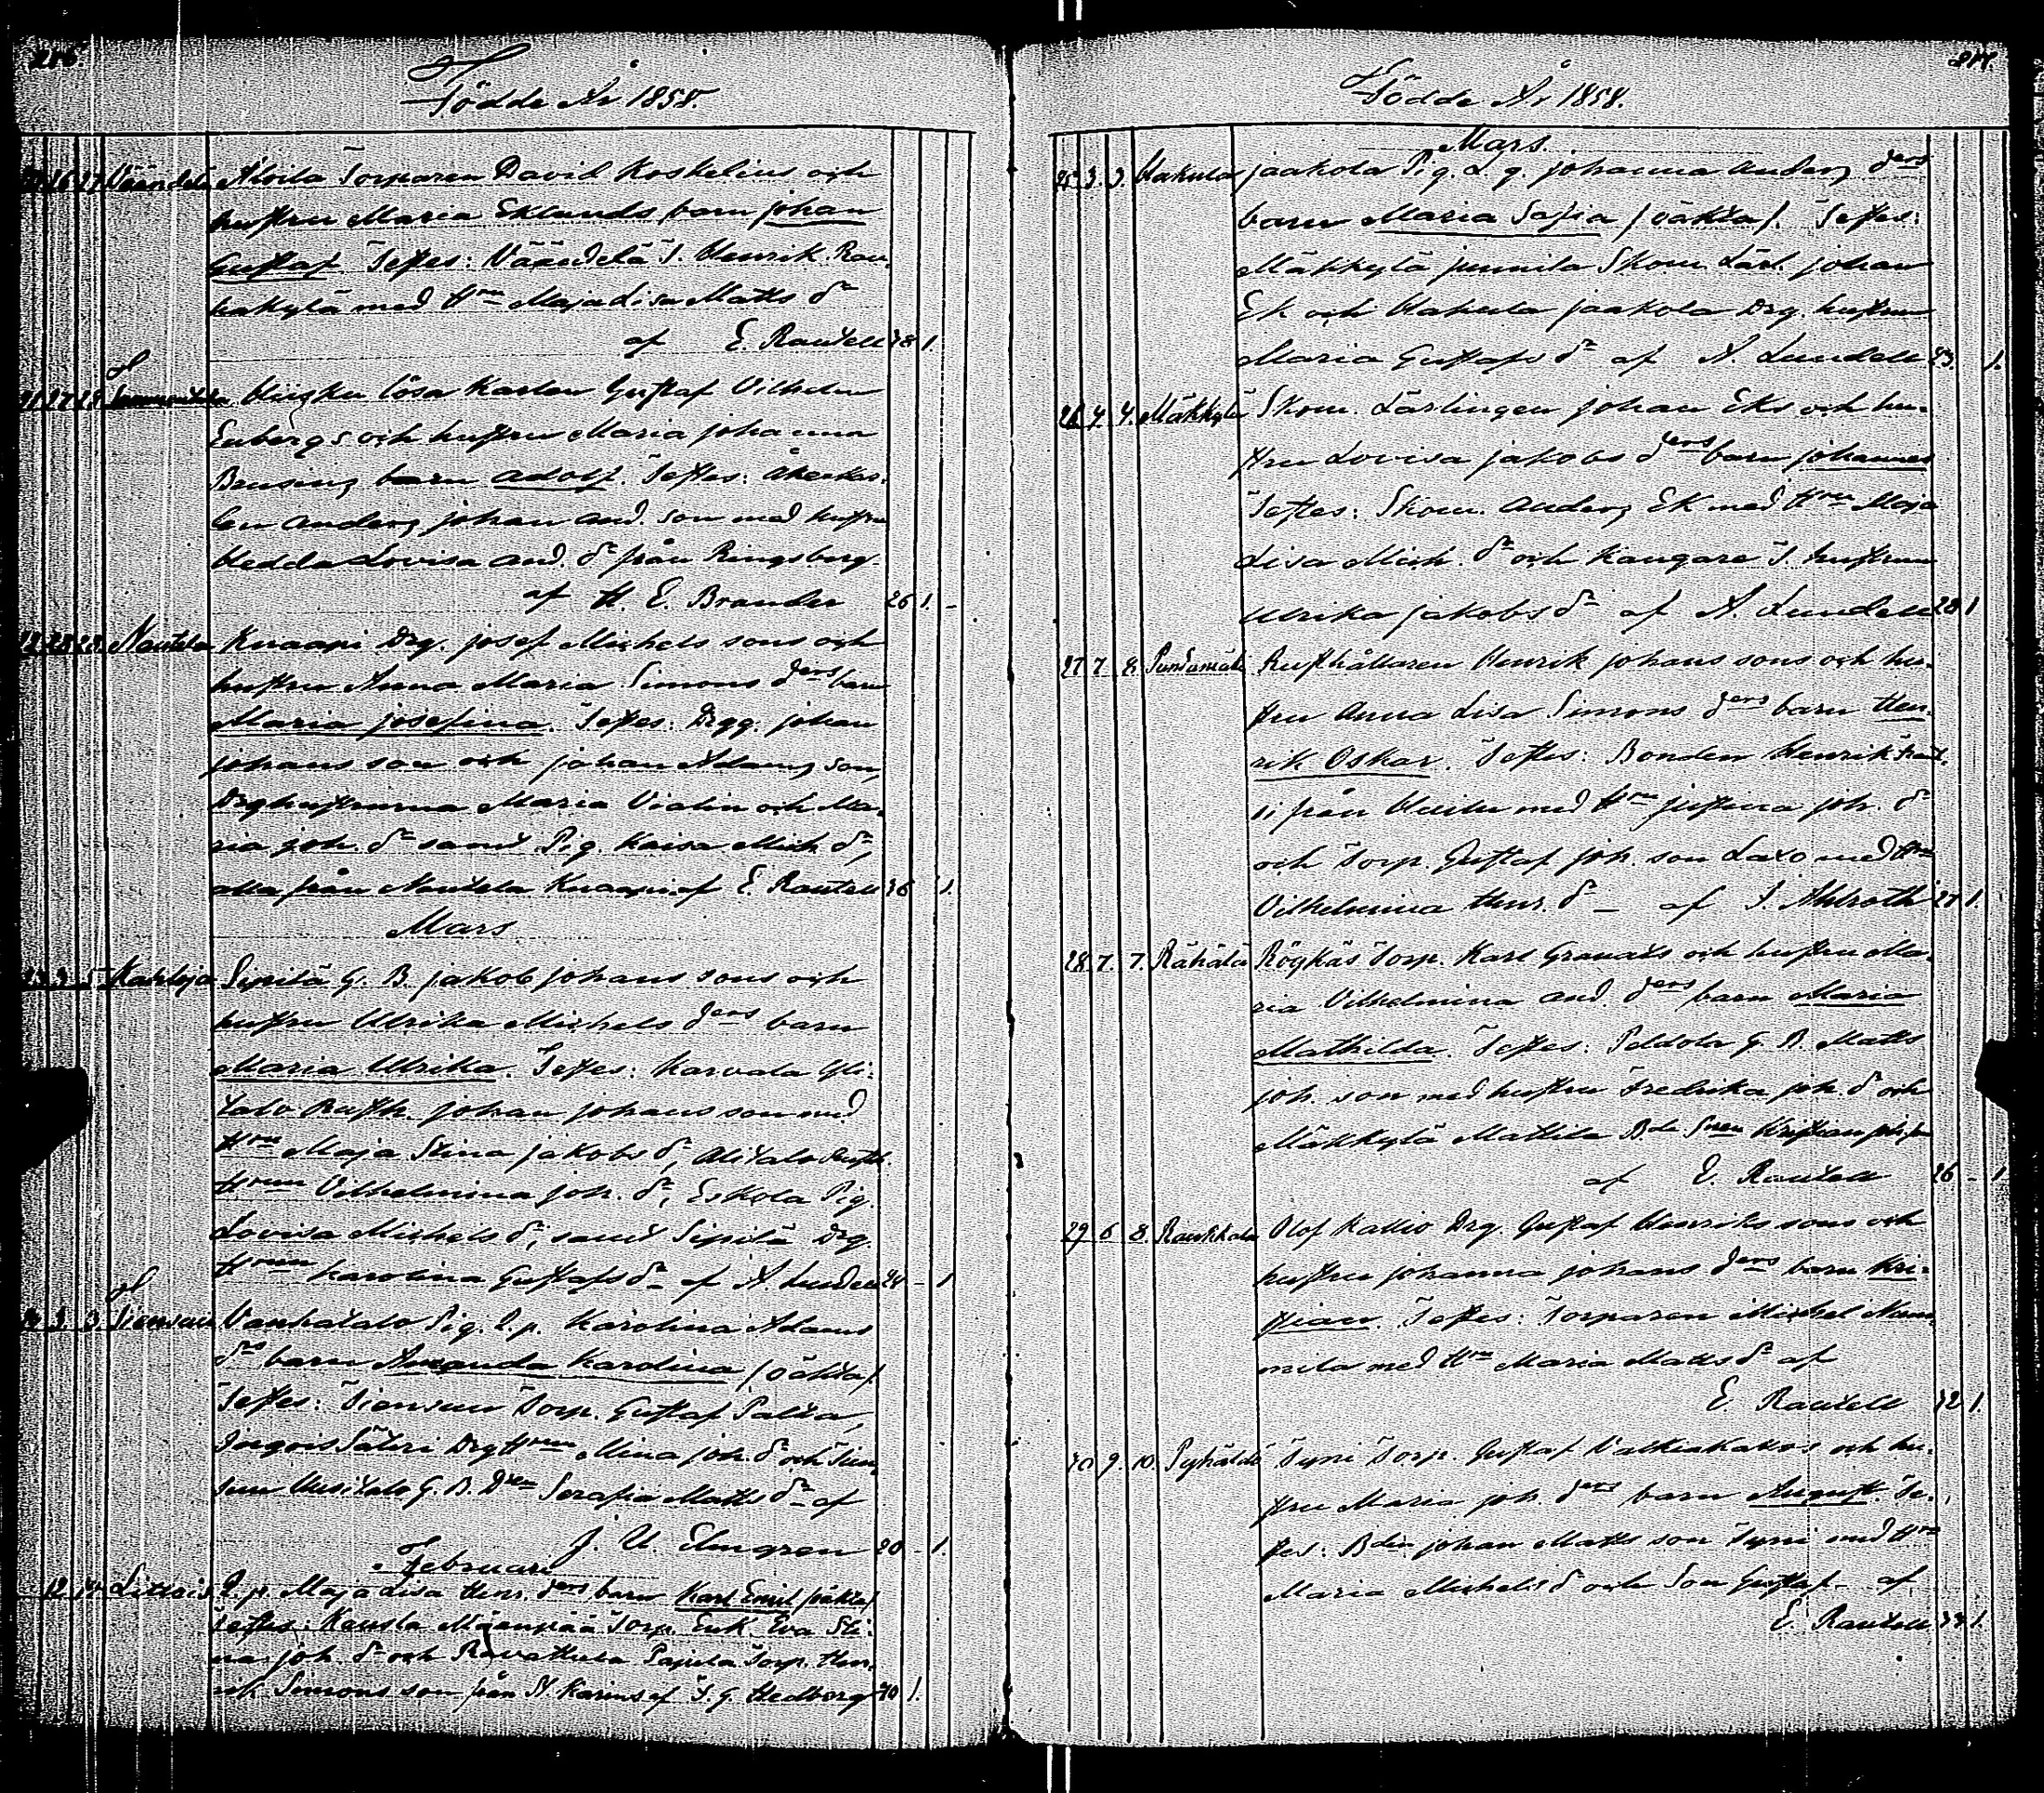 216
Födde År 1858.
26 27 Väändelä Alvila Torparen David Koskelins och
hustru Maria Eklunds barn Johan
Gustaf. Testes: Väändelä T. Henrik Rau-
hakylä med H:ru Maja Lisa Matts d:r
af E. Rautell 38 1.
27 28 Huisku lösa karlen Gustaf Vilhelm
Enbergs och hustru Maria Johanna
Brusing barn Adolf. Testes: Åkerkar-
len Anders Johan And. son med hustru
Hedda Lovisa And. d:r från Ringsberg.
af H. E. Brander 26 1. -
28 28. Nautela Knaapi Drg. Josef Michels sons och
hustru Anna Maria Simons d:ers barn
Maria Josefina. Testes: Drgg. Johan
Johans son och Johan Adams son,
Drghustrurna Maria Violin och Ma-
ria Joh. d:r samt Pig. Kaisa Mich. d:r,
alla från Nautela Knaapi af E. Rautell 36 1.
Mars
23 3 5 Karhoja Sipilä G. B. Jakob Johans sons och
hustru Ulrika Michels d:ers barn
Maria Ulrika. Testes: Karvala Yli-
talo Rusth. Johan Johans son med
H:ru Maja Stina Jakobs d:r, Alitalo Rusth.
H:run Vilhelmina Joh. d:r, Eskola Pig.
Lovisa Michels d:r, samt Sipilä Drg.
H:run Karolina Gustafs d:r af A. Lundell 24 - 1
3. 3. Vanhatalo Pig. Q. p. Karolina Adams
d:ers barn Amanda Karolina (oäkta)
Testes: Tiensuu Torp. Gustaf Salta,
Joegois Säteri Drg H:run Mina Joh. d:r och Tien-
suu Uusitalo G. B. D:ren Serafia Matts d:r af
J. U. Elmgren 20 - 1.
Februari
12 14 Littois Q. p. Maja Lisa Henr. d:ers barn Karl Emil (oäkta)
Testes: Kausla Mäenpää Torp. Enk. Eva Sti-
na Joh. d:r och Ravattula Papula Torp. Hen-
rik Simons son från St. Karins af T. G. Hedberg 40 1.
217.
Födde År 1858.
Mars
25 3. 3. Hakula Jaakola Pig. L. q. Johanna Anders d:ers
barn Maria Safia (oäkta). Testes:
Mäkkylä Junnila Skom. Lärl. Johan
Ek och Hakula Jaakola Drg. hustrun
Maria Gustafs d:r af A. Lundell 23. 1.
26 4. 4. Mäkkylä Skom. Lärlingen Johan Eks och hu-
stru Lovisa Jakobs d:ers barn Johannes
Testes: Skom. Anders Ek med H:ru Maja
Lisa Mich. d:r och Kangare T. hustrun
Ulrika Jakobs d:r af A. Lundell 28 1
27 7 8. Rusthållaren Henrik Johans sons och hu-
stru Anna Lisa Simons d:ers barn Hen-
rik Oskar. Testes: Bonden Henrik
från med H:ru Justina Joh. d:r
och Torp. Gustaf Joh. son Laxo med H:ru
Vilhelmina Henr. d:r - af J. Ahlroth 27 1.
28. 7. 7. Rähälä Röykäs Torp. Karl Granats och hustru Ma-
ria Vilhelmina And. d:ers barn Maria
Mathilda. Testes: Peldola G. B. Matts
Joh. son med hustru Fredrika Joh. d:r och
Mäkkylä Mattila B:de S:nen Kristian Joh. son
af E. Rautell 26 - 1
29 6 8. Raukkala Olof Kallio Drg. Gustaf Henriks sons och
hustru Johanna Johans d:ers barn Kri-
stian. Testes: Torparen Michel Num-
mila med H:ru Maria Matts d:r af
E. Rautell 32 1.
30 9. 10. Pyhältö Tyni Torp. Gustaf Valkiakallios och hu-
stru Maria Joh. d:ers barn August. Te-
stes: B:den Johan Matts son Tyni med H:ru
Maria Michels d:r och Son Gustaf. af
E. Rautell 34 1.